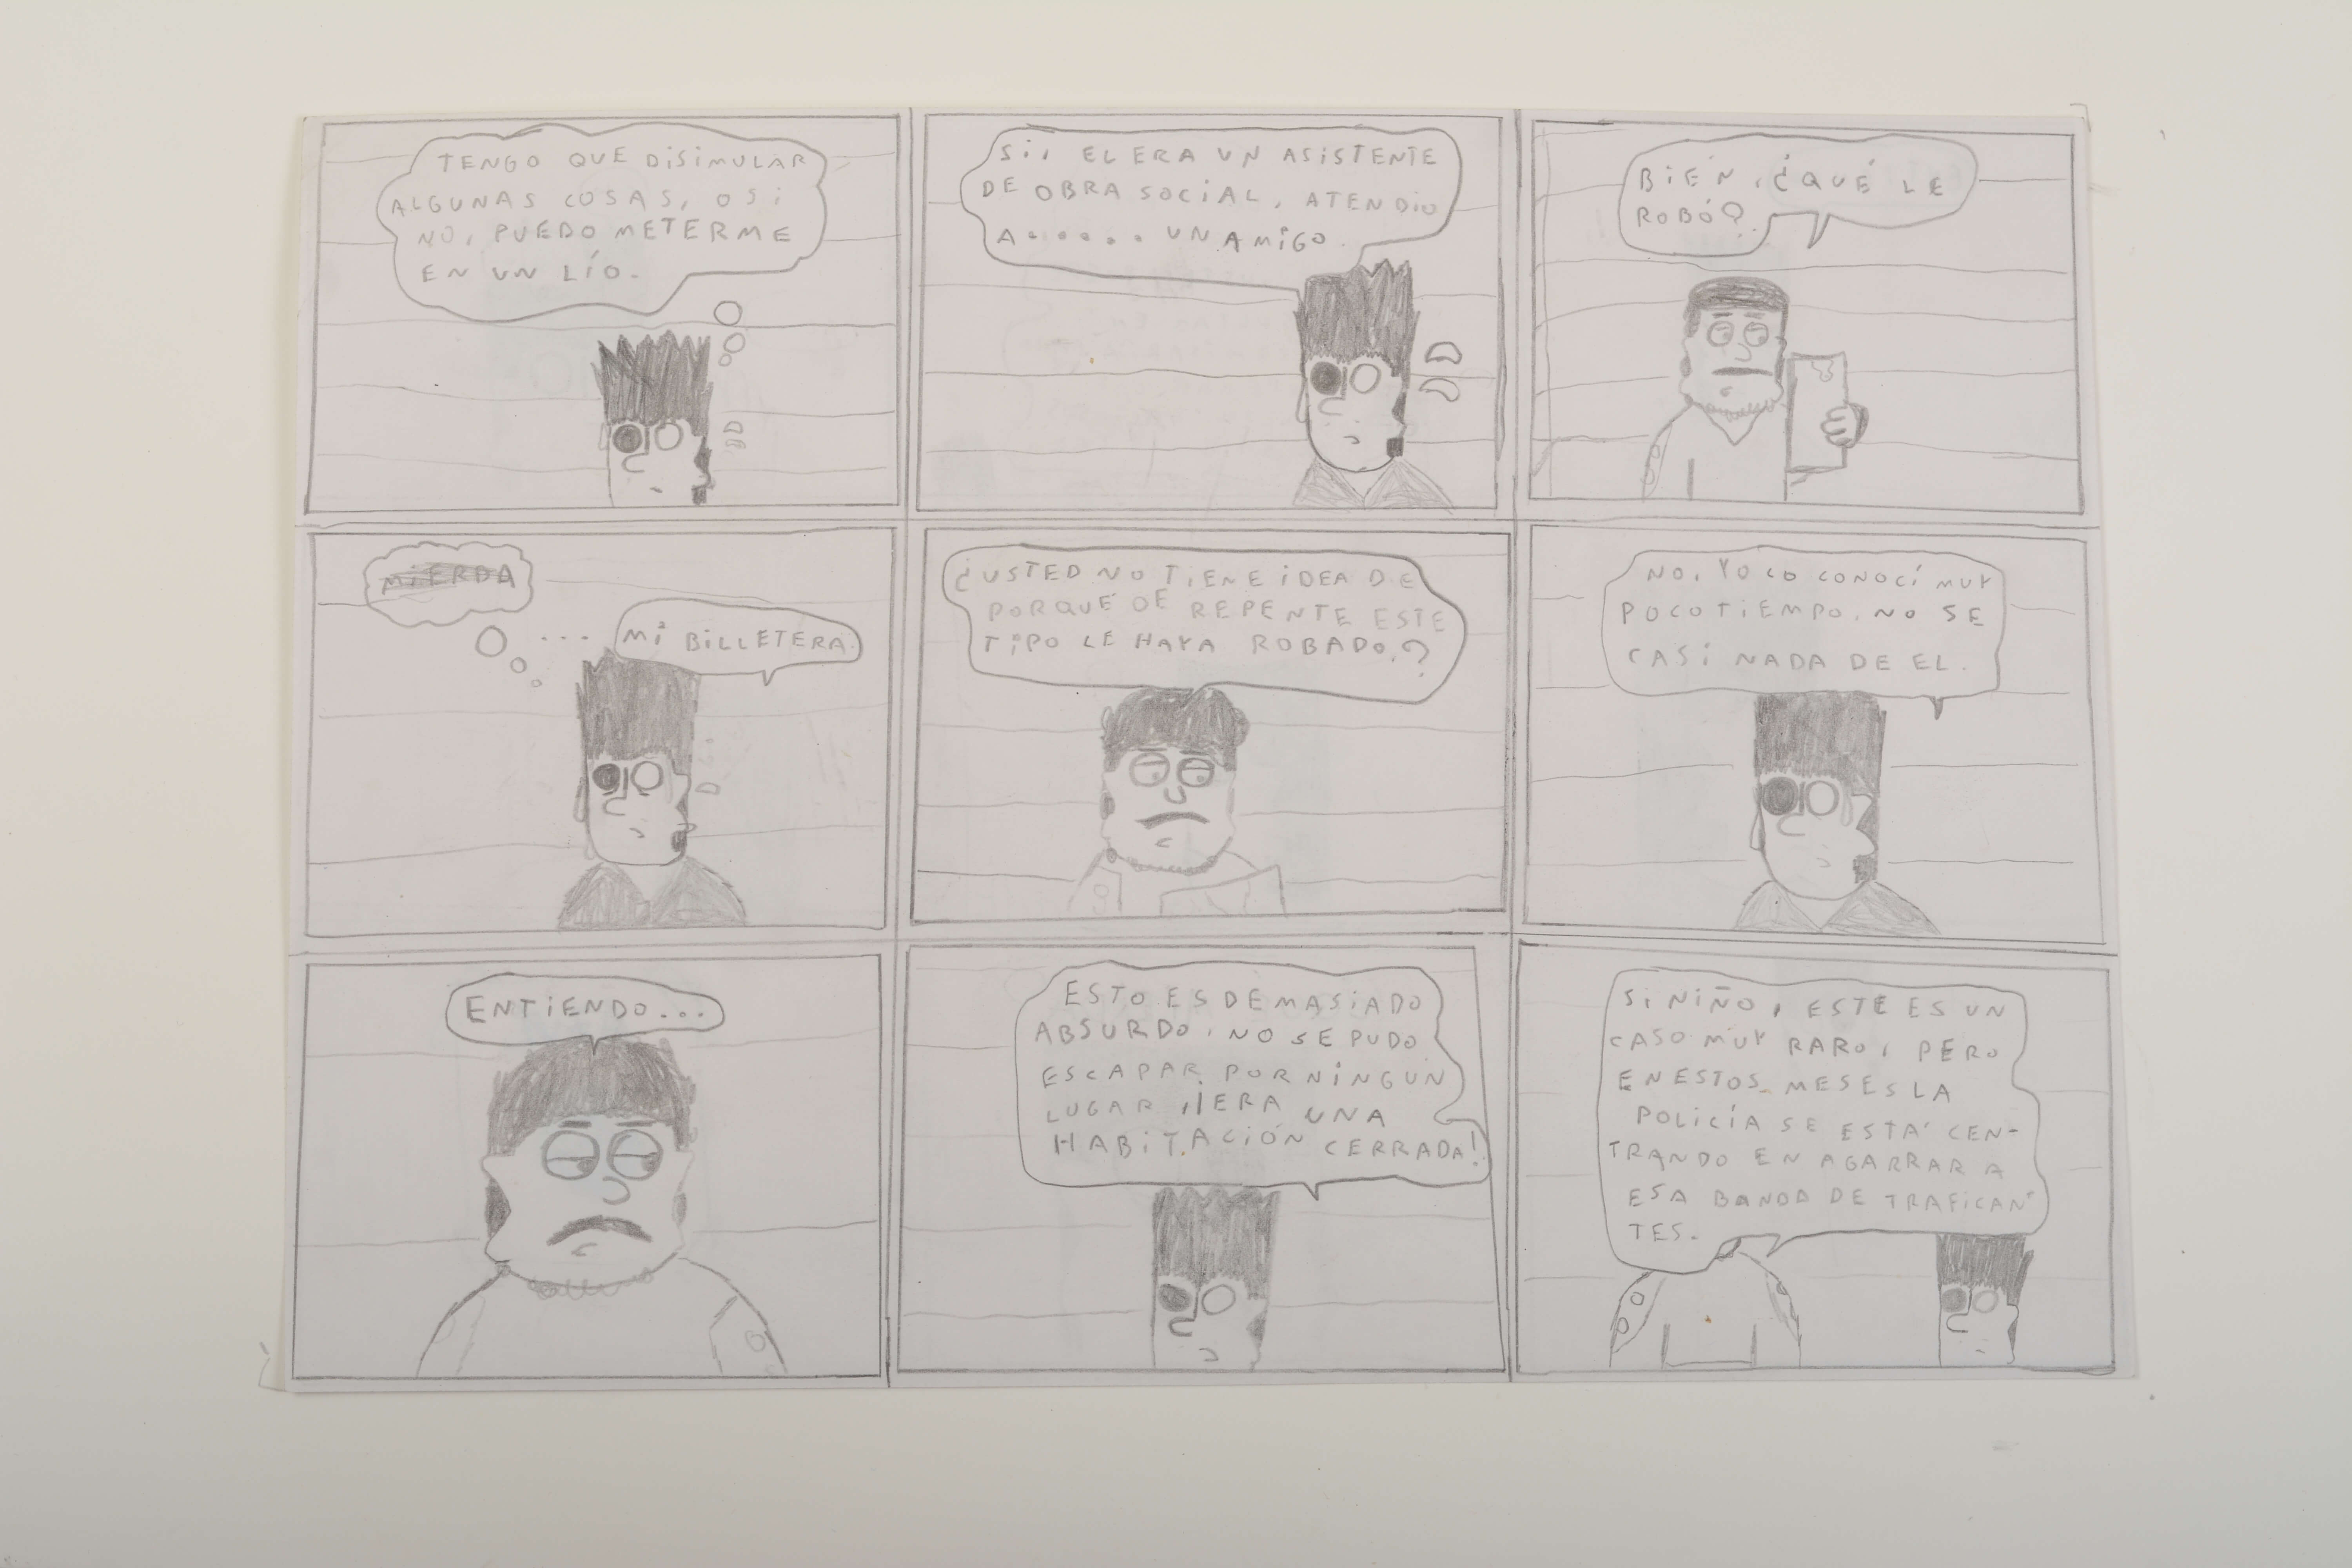 TENGO QUE DISIMULAR
ALGUNAS COSAS, O SI
NO, PUEDO METERME
EN UN LÍO.
SI, EL ERA UN ASISTENTE
DE OBRA SOCIAL, ATENDIO
A...... UN AMIGO.
BIEN, ¿QUÉ LE
ROBÓ?
MIERDA
... MI BILLETERA.
¿USTED NO TIENE IDEA DE
PORQUÉ DE REPENTE ESTE
TIPO LE HAYA ROBADO.?
NO, YO LO CONOCÍ MUY
POCO TIEMPO, NO SE
CASI NADA DE EL.
ENTIENDO...
ESTO ES DEMASIADO
ABSURDO, NO SE PUDO
ESCAPAR POR NINGUN
LUGAR ¡¡ERA UNA
HABITACIÓN CERRADA!
SI NIÑO, ESTE ES UN
CASO MUY RARO, PERO
EN ESTOS MESES LA
POLICÍA SE ESTÁ CEN-
TRANDO EN AGARRAR A
ESA BANDA DE TRAFICAN-
TES.